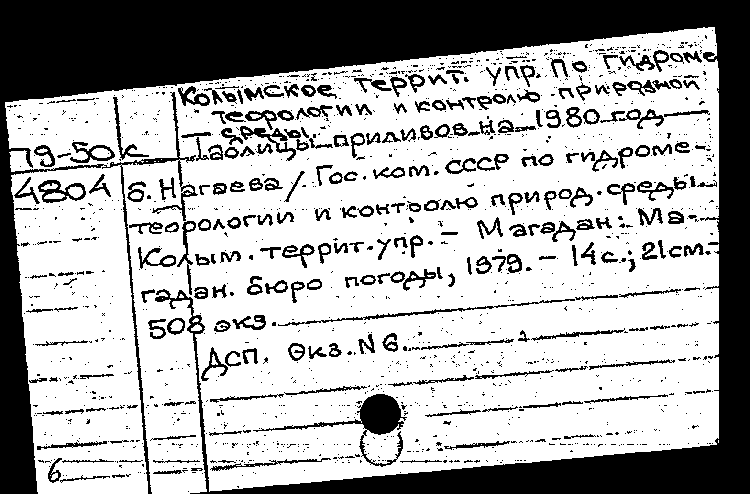 Колымское террит. упр. По гидроме
теорологии и контролю природной
среды.
79-50к Таблицы приливов на 1980 год
4804 б. Нагаева / Гос. ком. СССР по гидроме-
теорологии и контролю природ. среды.
Колым. террит. упр. - Магадан: Ма-
гадан. бюро погоды, 1979. - 14 с.; 21 см.-
508 экз.
Дсп. Экз. N 6.
6